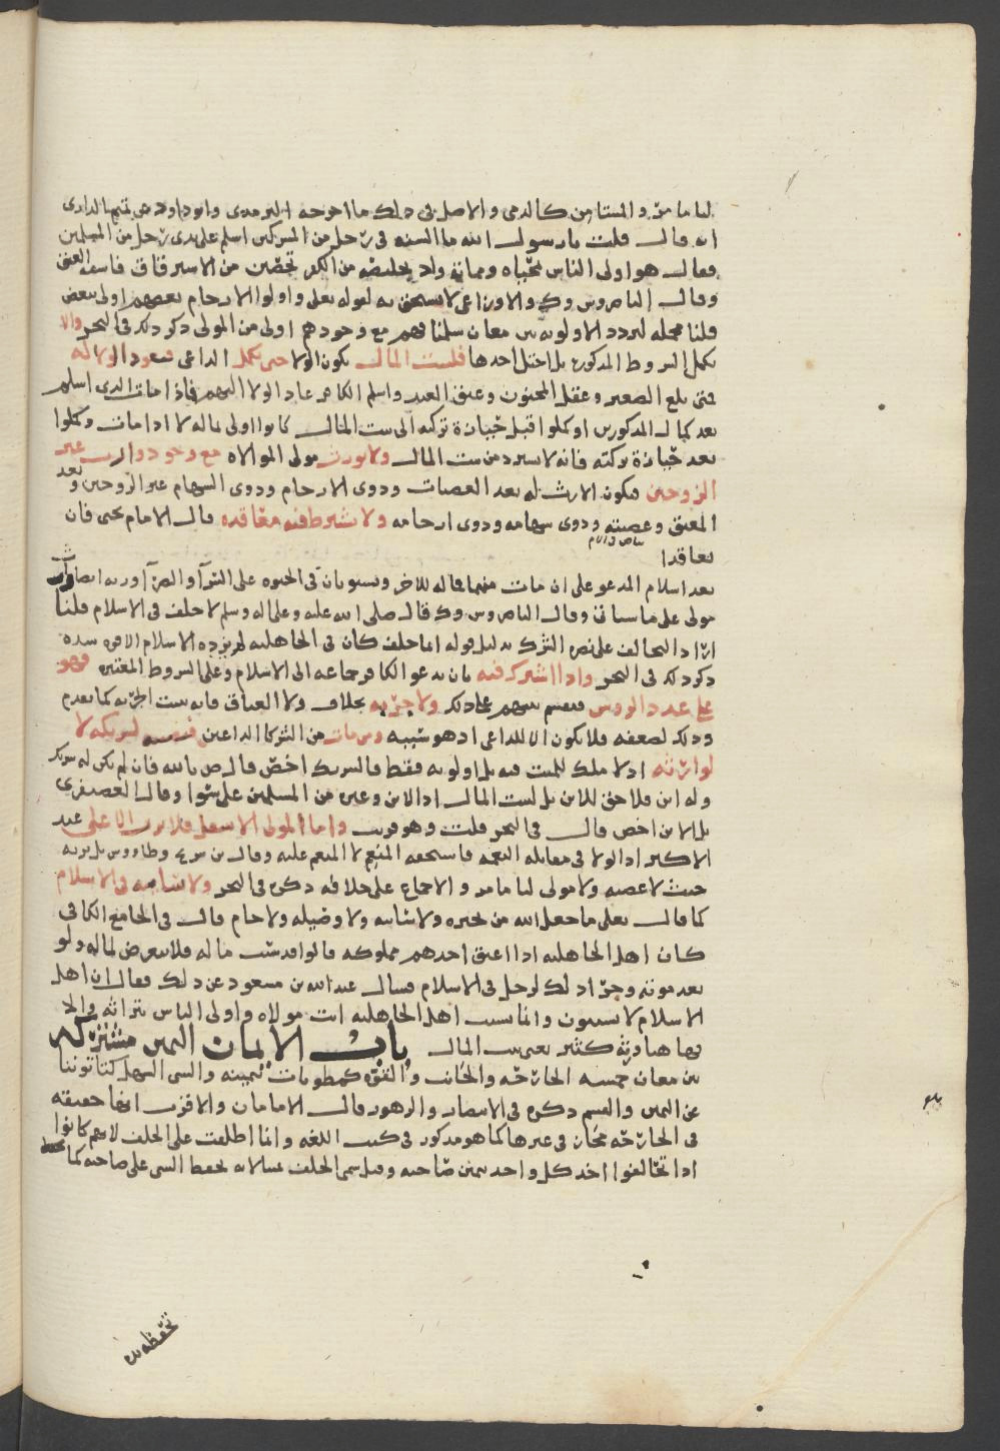 لنا ما مر والمستامن كالذمي والاصل في ذلك ما اخرجه الترمذي وابو داود عن تميم الداري
انه قال قلت يا رسول الله ما السنه في رجل من المشركين اسلم على يدي رجل من المسلمين
فقال هو اولى الناس بمحياه ومماته ولان تخليصه من الكفر تحصين من الاسترقاق فاشبه العتق
وقال الناصر وش وك والاوزاعي لا يستحق به لقوله تعلى واولوا الارحام بعضهم اولى ببعض
قلنا مجمله لتردد الاولويه بين معان سلمنا فهم مع وجودهم اولى من المولى ذكر ذلك في البحر والا
تكمل الشروط المذكوره بل اختل احدها فلبيت المال يكون الولا حتى يكمل الداعي فيعود الولا له
حتى بلغ الصغير وعقل المجنون وعتق العبد واسلم الكافر عاد الولا اليهم فاذا مات الذي اسلم
بعد كمال المذكورين او كملوا قبل حيازة تركته الى بيت المال كانوا اولى بماله لا اذا مات وكملوا
بعد حيازة تركته فانه لا يسترد من بيت المال ولا يورث مولى الموالاه مع وجود وارث غير
الزوجين فيكون الارث له بعد العصبات وذوي الارحام وذوي السهام غير الزوجين وبعد
المعتق وعصبته وذوي سهامه وذوي ارحامه ولا يشترط فيه معاقده قال الامام يحيى فان
تعاقدا
بعد اسلام المدعو على ان مات منهما فماله للاخر ويستويان في الحيوه على السرآ والضرآ ورثه ايضا
مولى على ما سياتي وقال الناصر وش وك قال صلى الله عليه وعلى اله وسلم لا حلف في الاسلام قلنا
اراد التحالف على نصر الشرك بدليل قوله ايما حلف كان في الجاهليه لم يزده الاسلام الا قوه شده
ذكر ذلك في البحر واذا اشترك فيه بان يدعو الكافر جماعه الى الاسلام وعلى الشروط المعتبره فهو
على عدد الروس فيقسم بينهم على ذلك ولا جزيه بخلاف ولا العتاق فانه يثبت الجزيه كما تقدم
وذلك لضعفه فلا يكون الا للداعي اذ هو سببه ومن مات من الشركا الداعين فنصيبه لشريكه لا
لوارثه اذ لا ملك للميت فيه بل اولويه فقط فالشريك اخص قال ص بالله فان لم يكن له شريك
وله ابن فلا حق للابن بل لبيت المال اذ الابن وغيره من المسلمين على سوا وقال العصيفري
بل الابن اخص قال في البحر قلت وهو قريب واما المولى الاسفل فلا يرث الاعلى عند
الاكثر اذ الولا في مقابله النعمه فاستحقه المنعم لا المنعم عليه وقال بن شريح وطاووس بل يرثه
حيث لا عصبه ولا مولى لنا ما مر والاجماع على خلافه ذكره في البحر ولا سائبه في الاسلام
كما قال تعلى ما جعل الله من بحيره ولا سائبه ولا وصيله ولا حام قال في الجامع الكافي
كان اهل الجاهليه اذا اعتق احدهم مملوكه قالوا قد سيب ماله فلا يتعرض لماله ولو
بعد موته وجرا ذلك لرجل في الاسلام فسال عبد الله بن مسعود عن ذلك فقال ان اهل
الاسلام لا يسيبون وانما يسيب اهل الجاهليه انت مولاه واولى الناس بتراثه والا
فها هنا ورثه كثير يعني بيت المال باب الايمان اليمين مشتركه
بين معان خمسه الجارحه والجانب والقوه كمطويات بيمينه والشي السهل كتاتوننا
عن اليمين والقسم ذكره في الانتصار والزهور وقال الامامان والاقرب انها حقيقه
في الجارحه مجاز في غيرها كما هو مذكور في كتب اللغه وانما اطلقت على الحلف لانهم كانوا
اذا تحالفوا اخذ كل واحد بيمين صاحبه وقيل سمي الحلف يمينا لانه يحفظ الشي على صاحبه كما
تحفظه يده